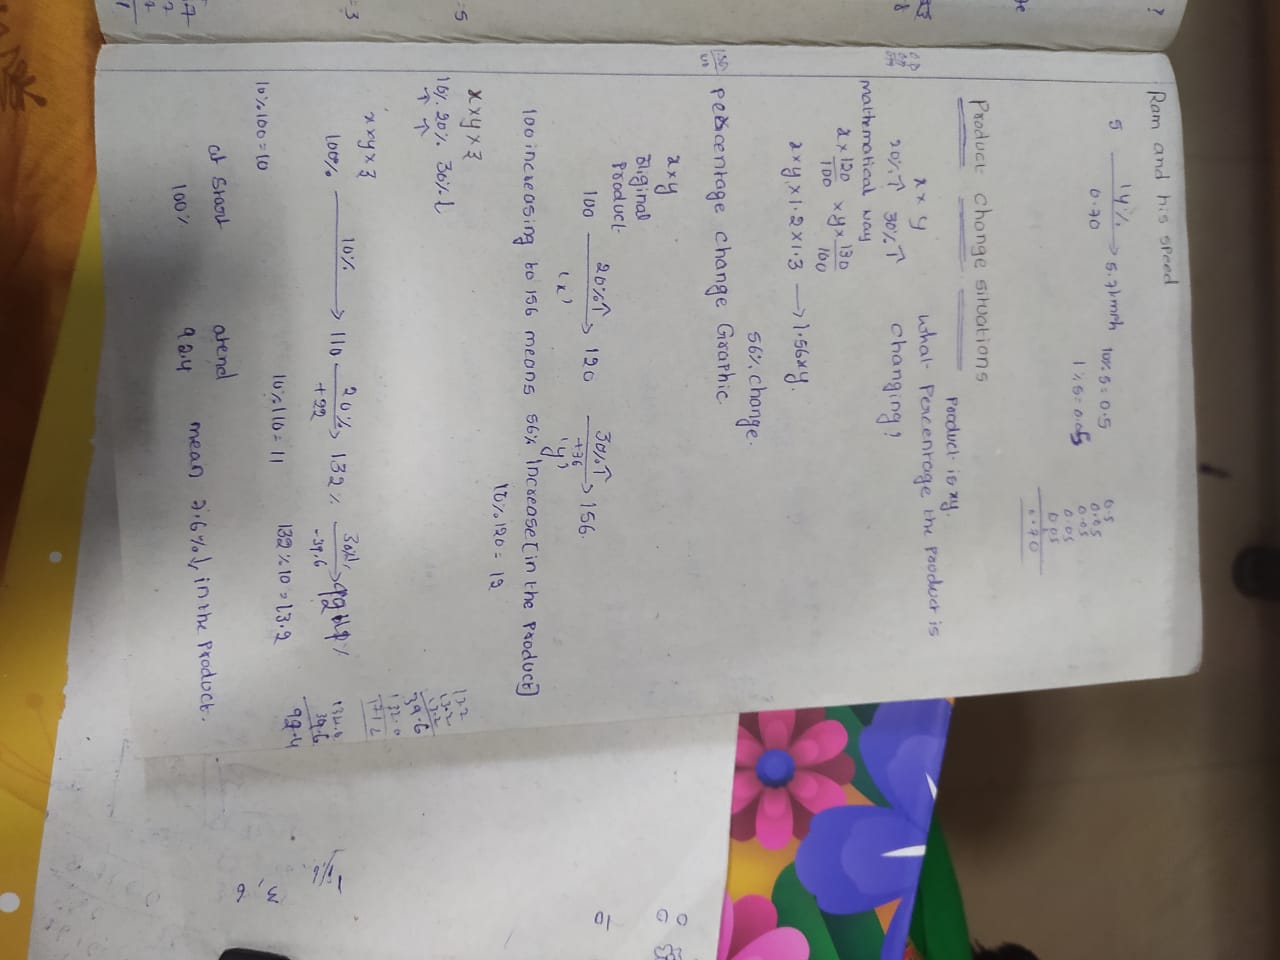 Ram and his speed
5 14% → 5.7 kmph 10% 5 = 0.5
0.70 1% 5 = 0.05
0.5
0.05
0.05
0.05
0.05
0.70
Product change situations
x x y Product is xy.
20%↑ 30%↑ what Percentage the Product is
changing?
mathematical way
x × 120/100 × y × 130/100
x × y × 1.2 × 1.3 → 1.56xy.
56% change.
percentage change Graphic.
x x y
Original
Product
100 20%↑ → 120 30%↑ → 156.
'x' +36 'y'
10% 120 = 12
100 increasing to 156 means 56% Increase [in the Product]
x x y x z
10% 20% 30%↓
↑ ↑
x x y x z
100% 10% → 110 20% → 132% 30%↓ → 92.4%
+22 -39.6
10% 100 = 10 10% 110 = 11 132% 10 = 13.2
13.2
13.2
13.2
39.6
132.0
171.6
39.6
92.4
at Start atend
100% 92.4 mean 7.6%↓ in the Product.